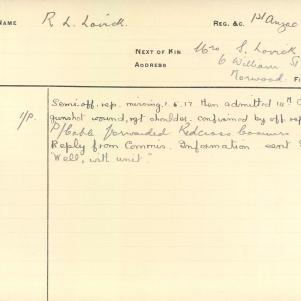 NAME R. L. Lovick. REG. &C. 1st Anzac
NEXT OF KIN Mrs S. Lovick
ADDRESS 6 William St
Norwood. FI
1/P. Semi. off. rep. missing, 1.5.17 then admitted 10th C
gunshot wound, rgt shoulder. confirmed by off. rep
P/Cable forwarded Redcross
Reply from Commis. Information sent
Well, with unit"